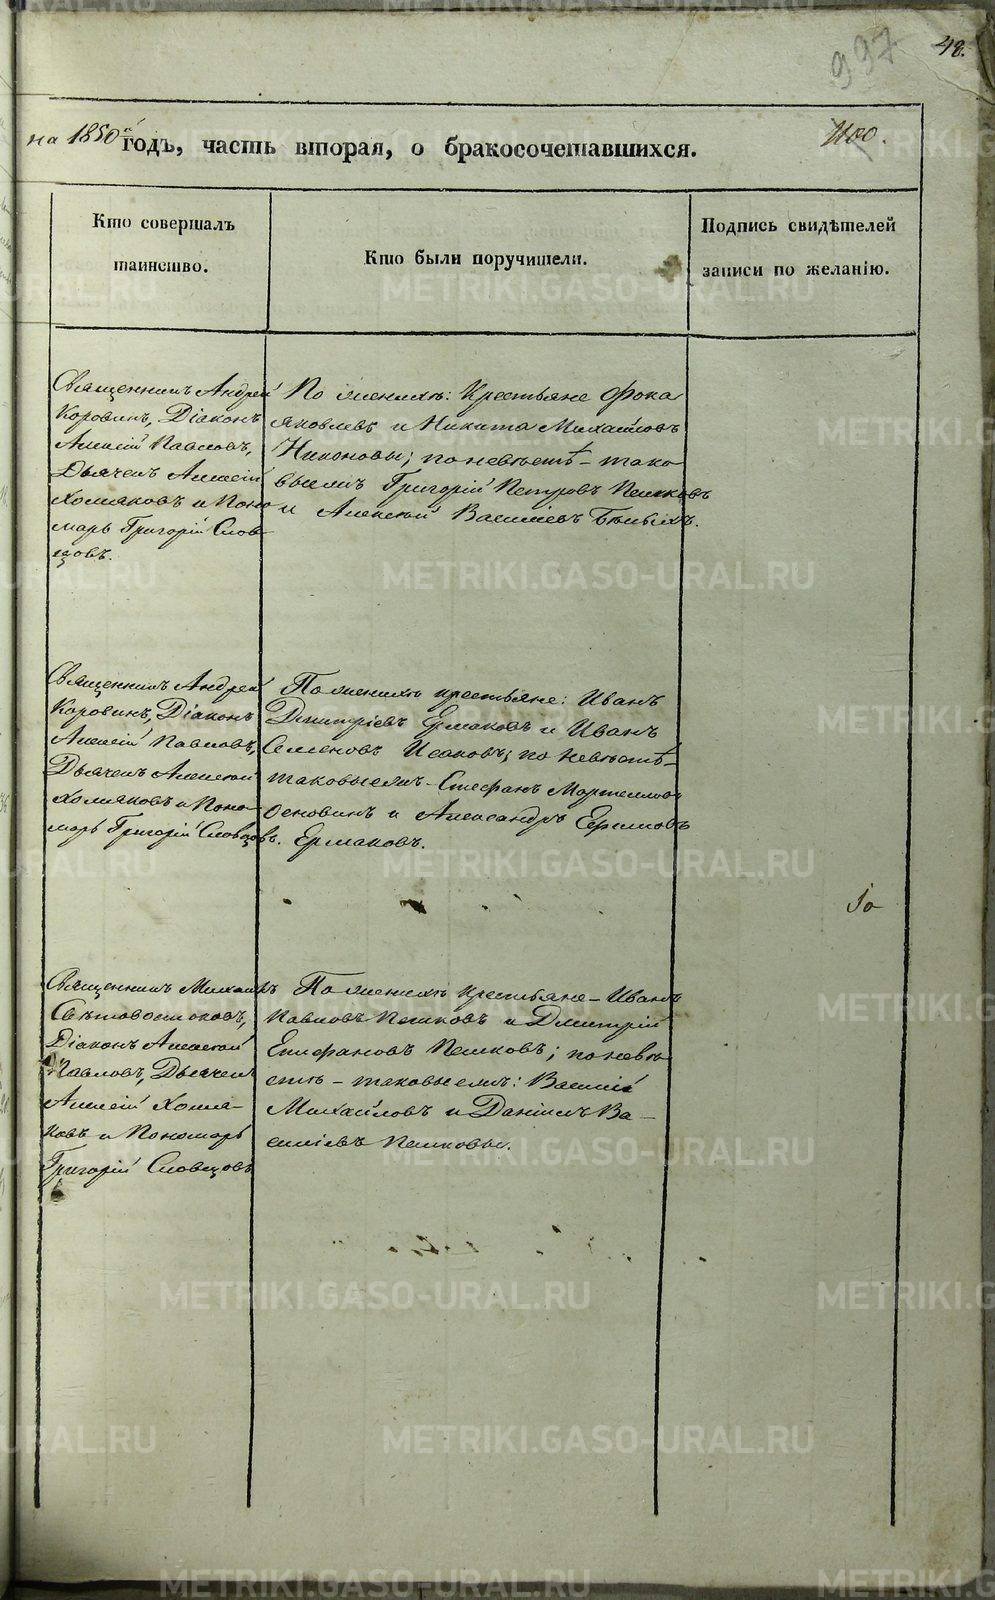 997
48.
на 1850й годъ, часть вторая, о бракосочетавшихся.
1100.
Кто совершалъ
таинство.
Кто были поручители.
Подпись свидѣтелей
записи по желанію.
Священникъ Андрей
Коровинъ, Діаконъ
Алексій Павловъ,
Дьячекъ Алексій
Холмяковъ и Поно-
марь Григорій Слов-
цовъ.
По женихѣ: Крестьяне Фока
Яковлевъ и Никита Михайловъ
Никоновы; по невѣстѣ - тако-
выежъ Григорій Петровъ Пешковъ
и Алексѣй Василіевъ Бѣлыхъ.
Священникъ Андрей
Коровинъ, Діаконъ
Алексій Павловъ,
Дьячекъ Алексѣй
Холмяковъ и Поно-
марь Григорій Словцовъ.
По женихѣ крестьяне: Иванъ
Дмитріевъ Ермаковъ и Иванъ
Семеновъ Исаковъ; по невѣстѣ
таковыежъ - Стефанъ
Основинъ и Александръ Ефимовъ
Ермаковъ.
10
Священникъ Михаилъ
Свѣтовостоковъ,
Діаконъ Алексѣй
Павловъ, Дьячекъ
Алексій Холмя-
ковъ и Пономарь
Григорій Словцовъ
По женихѣ Крестьяне - Иванъ
Павловъ Пешковъ и Дмитрій
Епифановъ Пешковъ; по невѣ-
стѣ - таковыежъ: Василій
Михайловъ и Даніилъ Ва-
силіевъ Пешковы.
METRIKI.GASO-URAL.RU